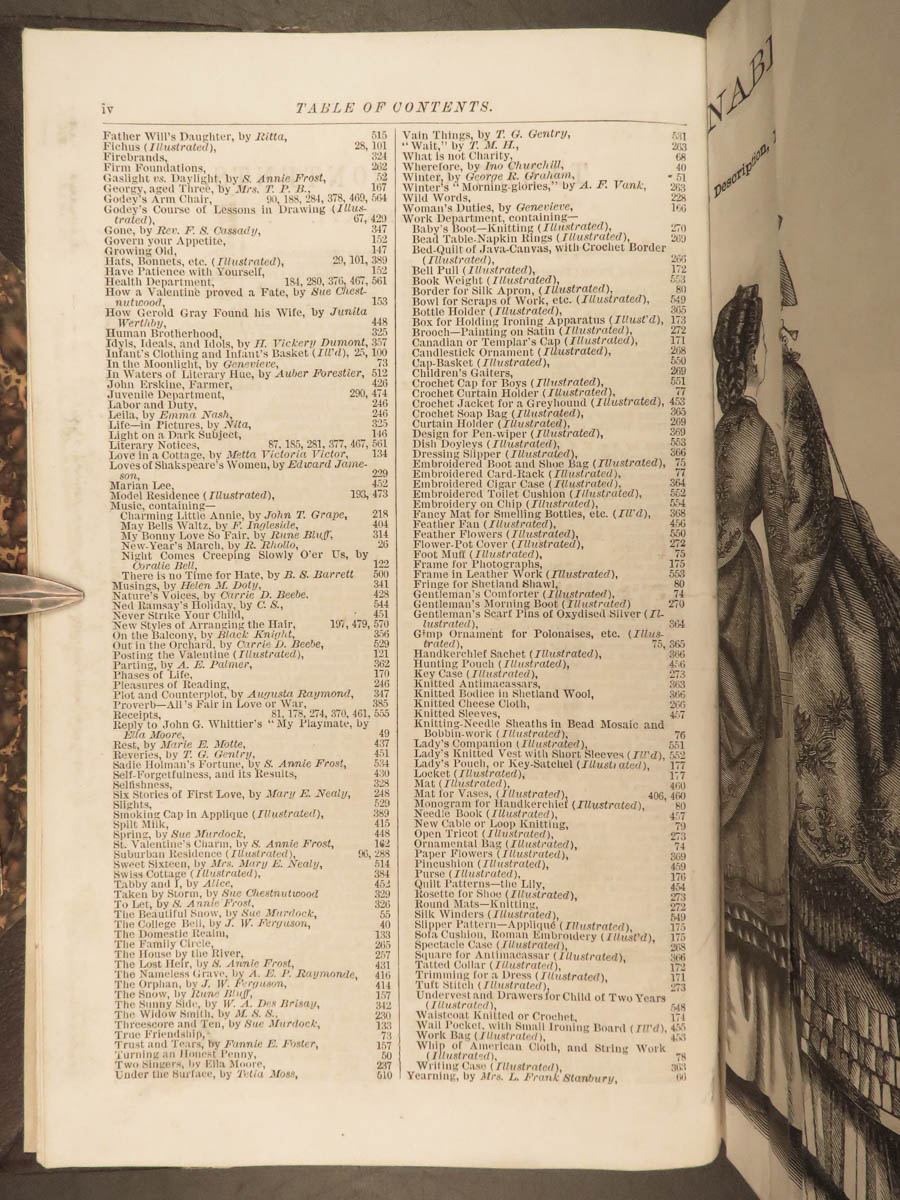 iv
TABLE OF CONTENTS.
Father Will's Daughter, by Ritta, 515
Fichus (Illustrated), 28, 101
Firebrands, 324
Firm Foundations, 262
Gaslight vs. Daylight, by S. Annie Frost, 52
Georgy, aged Three, by Mrs. T. P. B., 167
Godey's Arm Chair, 90, 188, 284, 378, 469, 564
Godey's Course of Lessons in Drawing (Illus-
trated), 67, 429
Gone, by Rev. F. S. Cassady, 347
Govern your Appetite, 152
Growing Old, 147
Hats, Bonnets, etc. (Illustrated), 29, 101, 389
Have Patience with Yourself, 152
Health Department, 184, 280, 376, 467, 561
How a Valentine proved a Fate, by Sue Chest-
nutwood, 153
How Gerold Gray Found his Wife, by Junita
Werthby, 448
Human Brotherhood, 325
Idyls, Ideals, and Idols, by H. Vickery Dumont, 357
Infant's Clothing and Infant's Basket (Ill'd), 25, 100
In the Moonlight, by Genevieve, 73
In Waters of Literary Hue, by Auber Forestier, 512
John Erskine, Farmer, 426
Juvenile Department, 290, 474
Labor and Duty, 246
Leila, by Emma Nash, 246
Life—in Pictures, by Nita, 325
Light on a Dark Subject, 146
Literary Notices, 87, 185, 281, 377, 467, 561
Love in a Cottage, by Metta Victoria Victor, 134
Loves of Shakspeare's Women, by Edward Jame-
son, 229
Marian Lee, 452
Model Residence (Illustrated), 193, 473
Music, containing—
Charming Little Annie, by John T. Grape, 218
May Bells Waltz, by F. Ingleside, 404
My Bonny Love So Fair, by Rune Bluff, 314
New-Year's March, by R. Rhollo, 26
Night Comes Creeping Slowly O'er Us, by
Coralie Bell, 122
There is no Time for Hate, by B. S. Barrett 500
Musings, by Helen M. Doty, 341
Nature's Voices, by Carrie D. Beebe. 428
Ned Ramsay's Holiday, by C. S., 544
Never Strike Your Child, 451
New Styles of Arranging the Hair, 197, 479, 570
On the Balcony, by Black Knight, 356
Out in the Orchard, by Carrie D. Beebe, 529
Posting the Valentine (Illustrated), 121
Parting, by A. E. Palmer, 362
Phases of Life, 170
Pleasures of Reading, 246
Plot and Counterplot, by Augusta Raymond, 347
Proverb—All's Fair in Love or War, 385
Receipts, 81, 178, 274, 370, 461, 555
Reply to John G. Whittier's "My Playmate, by
Ella Moore, 49
Rest, by Marie E. Motte, 437
Reveries, by T. G. Gentry, 451
Sadie Holman's Fortune, by S. Annie Frost, 534
Self-Forgetfulness, and its Results, 430
Selfishness, 328
Six Stories of First Love, by Mary E. Nealy, 248
Slights, 529
Smoking Cap in Applique (Illustrated), 389
Spilt Milk, 415
Spring, by Sue Murdock, 448
St. Valentine's Charm, by S. Annie Frost, 142
Suburban Residence (Illustrated), 96, 288
Sweet Sixteen, by Mrs. Mary E. Nealy, 514
Swiss Cottage (Illustrated), 384
Tabby and I, by Alice, 452
Taken by Storm, by Sue Chestnutwood 329
To Let, by S. Annie Frost, 326
The Beautiful Snow, by Sue Murdock, 55
The College Bell, by J. W. Ferguson, 40
The Domestic Realm, 133
The Family Circle, 265
The House by the River, 257
The Lost Heir, by S. Annie Frost, 431
The Nameless Grave, by A. E. P. Raymonde, 416
The Orphan, by J. W. Ferguson, 414
The Snow, by Rune Bluff, 157
The Sunny Side, by W. A. Des Brisay, 342
The Widow Smith, by M. S. S., 230
Threescore and Ten, by Sue Murdock, 133
True Friendship, 73
Trust and Tears, by Fannie E. Foster, 157
Turning an Honest Penny, 50
Two Singers, by Ella Moore, 237
Under the Surface, by Tetia Moss, 510
Vain Things, by T. G. Gentry, 531
"Wait," by T. M. H., 263
What is not Charity, 68
Wherefore, by Ino Churchill, 40
Winter, by George R. Graham, 51
Winter's "Morning-glories," by A. F. Vank, 263
Wild Words, 228
Woman's Duties, by Genevieve, 166
Work Department, containing—
Baby's Boot—Knitting (Illustrated), 270
Bead Table-Napkin Rings (Illustrated), 269
Bed-Quilt of Java-Canvas, with Crochet Border
(Illustrated), 266
Bell Pull (Illustrated), 172
Book Weight (Illustrated), 553
Border for Silk Apron, (Illustrated), 80
Bowl for Scraps of Work, etc. (Illustrated), 549
Bottle Holder (Illustrated), 365
Box for Holding Ironing Apparatus (Illust'd), 173
Brooch—Painting on Satin (Illustrated), 272
Canadian or Templar's Cap (Illustrated), 171
Candlestick Ornament (Illustrated), 268
Cap-Basket (Illustrated), 550
Children's Gaiters, 269
Crochet Cap for Boys (Illustrated), 551
Crochet Curtain Holder (Illustrated), 77
Crochet Jacket for a Greyhound (Illustrated), 453
Crochet Soap Bag (Illustrated), 365
Curtain Holder (Illustrated), 269
Design for Pen-wiper (Illustrated), 369
Dish Doyleys (Illustrated), 553
Dressing Slipper (Illustrated), 366
Embroidered Boot and Shoe Bag (Illustrated), 75
Embroidered Card-Rack (Illustrated), 77
Embroidered Cigar Case (Illustrated), 364
Embroidered Toilet Cushion (Illustrated), 552
Embroidery on Chip (Illustrated), 554
Fancy Mat for Smelling Bottles, etc. (Ill'd), 368
Feather Fan (Illustrated), 456
Feather Flowers (Illustrated), 550
Flower-Pot Cover (Illustrated), 272
Foot Muff (Illustrated), 75
Frame for Photographs, 175
Frame in Leather Work (Illustrated), 553
Fringe for Shetland Shawl, 80
Gentleman's Comforter (Illustrated), 74
Gentleman's Morning Boot (Illustrated) 270
Gentleman's Scarf Pins of Oxydised Silver (Il-
lustrated), 364
Gimp Ornament for Polonaises, etc. (Illus-
trated), 75, 365
Handkerchief Sachet (Illustrated), 366
Hunting Pouch (Illustrated), 456
Key Case (Illustrated), 273
Knitted Antimacassars, 363
Knitted Bodice in Shetland Wool, 366
Knitted Cheese Cloth, 266
Knitted Sleeves, 457
Knitting-Needle Sheaths in Bead Mosaic and
Bobbin-work (Illustrated), 76
Lady's Companion (Illustrated), 551
Lady's Knitted Vest with Short Sleeves (Ill'd), 552
Lady's Pouch, or Key-Satchel (Illustrated), 177
Locket (Illustrated), 177
Mat (Illustrated), 460
Mat for Vases, (Illustrated), 406, 460
Monogram for Handkerchief (Illustrated), 80
Needle Book (Illustrated), 457
New Cable or Loop Knitting, 79
Open Tricot (Illustrated), 273
Ornamental Bag (Illustrated), 74
Paper Flowers (Illustrated), 369
Pincushion (Illustrated), 459
Purse (Illustrated), 176
Quilt Patterns—the Lily, 454
Rosette for Shoe (Illustrated), 273
Round Mats—Knitting, 272
Silk Winders (Illustrated), 549
Slipper Pattern—Appliqué (Illustrated), 175
Sofa Cushion, Roman Embroidery (Illust'd), 175
Spectacle Case (Illustrated), 268
Square for Antimacassar (Illustrated), 366
Tatted Collar (Illustrated), 172
Trimming for a Dress (Illustrated), 171
Tuft Stitch (Illustrated), 273
Undervest and Drawers for Child of Two Years
(Illustrated), 548
Waistcoat Knitted or Crochet, 174
Wall Pocket, with Small Ironing Board (Ill'd), 455
Work Bag (Illustrated), 453
Whip of American Cloth, and String Work
(Illustrated), 78
Writing Case (Illustrated), 363
Yearning, by Mrs. L. Frank Stanbury, 66
NABI
Description,